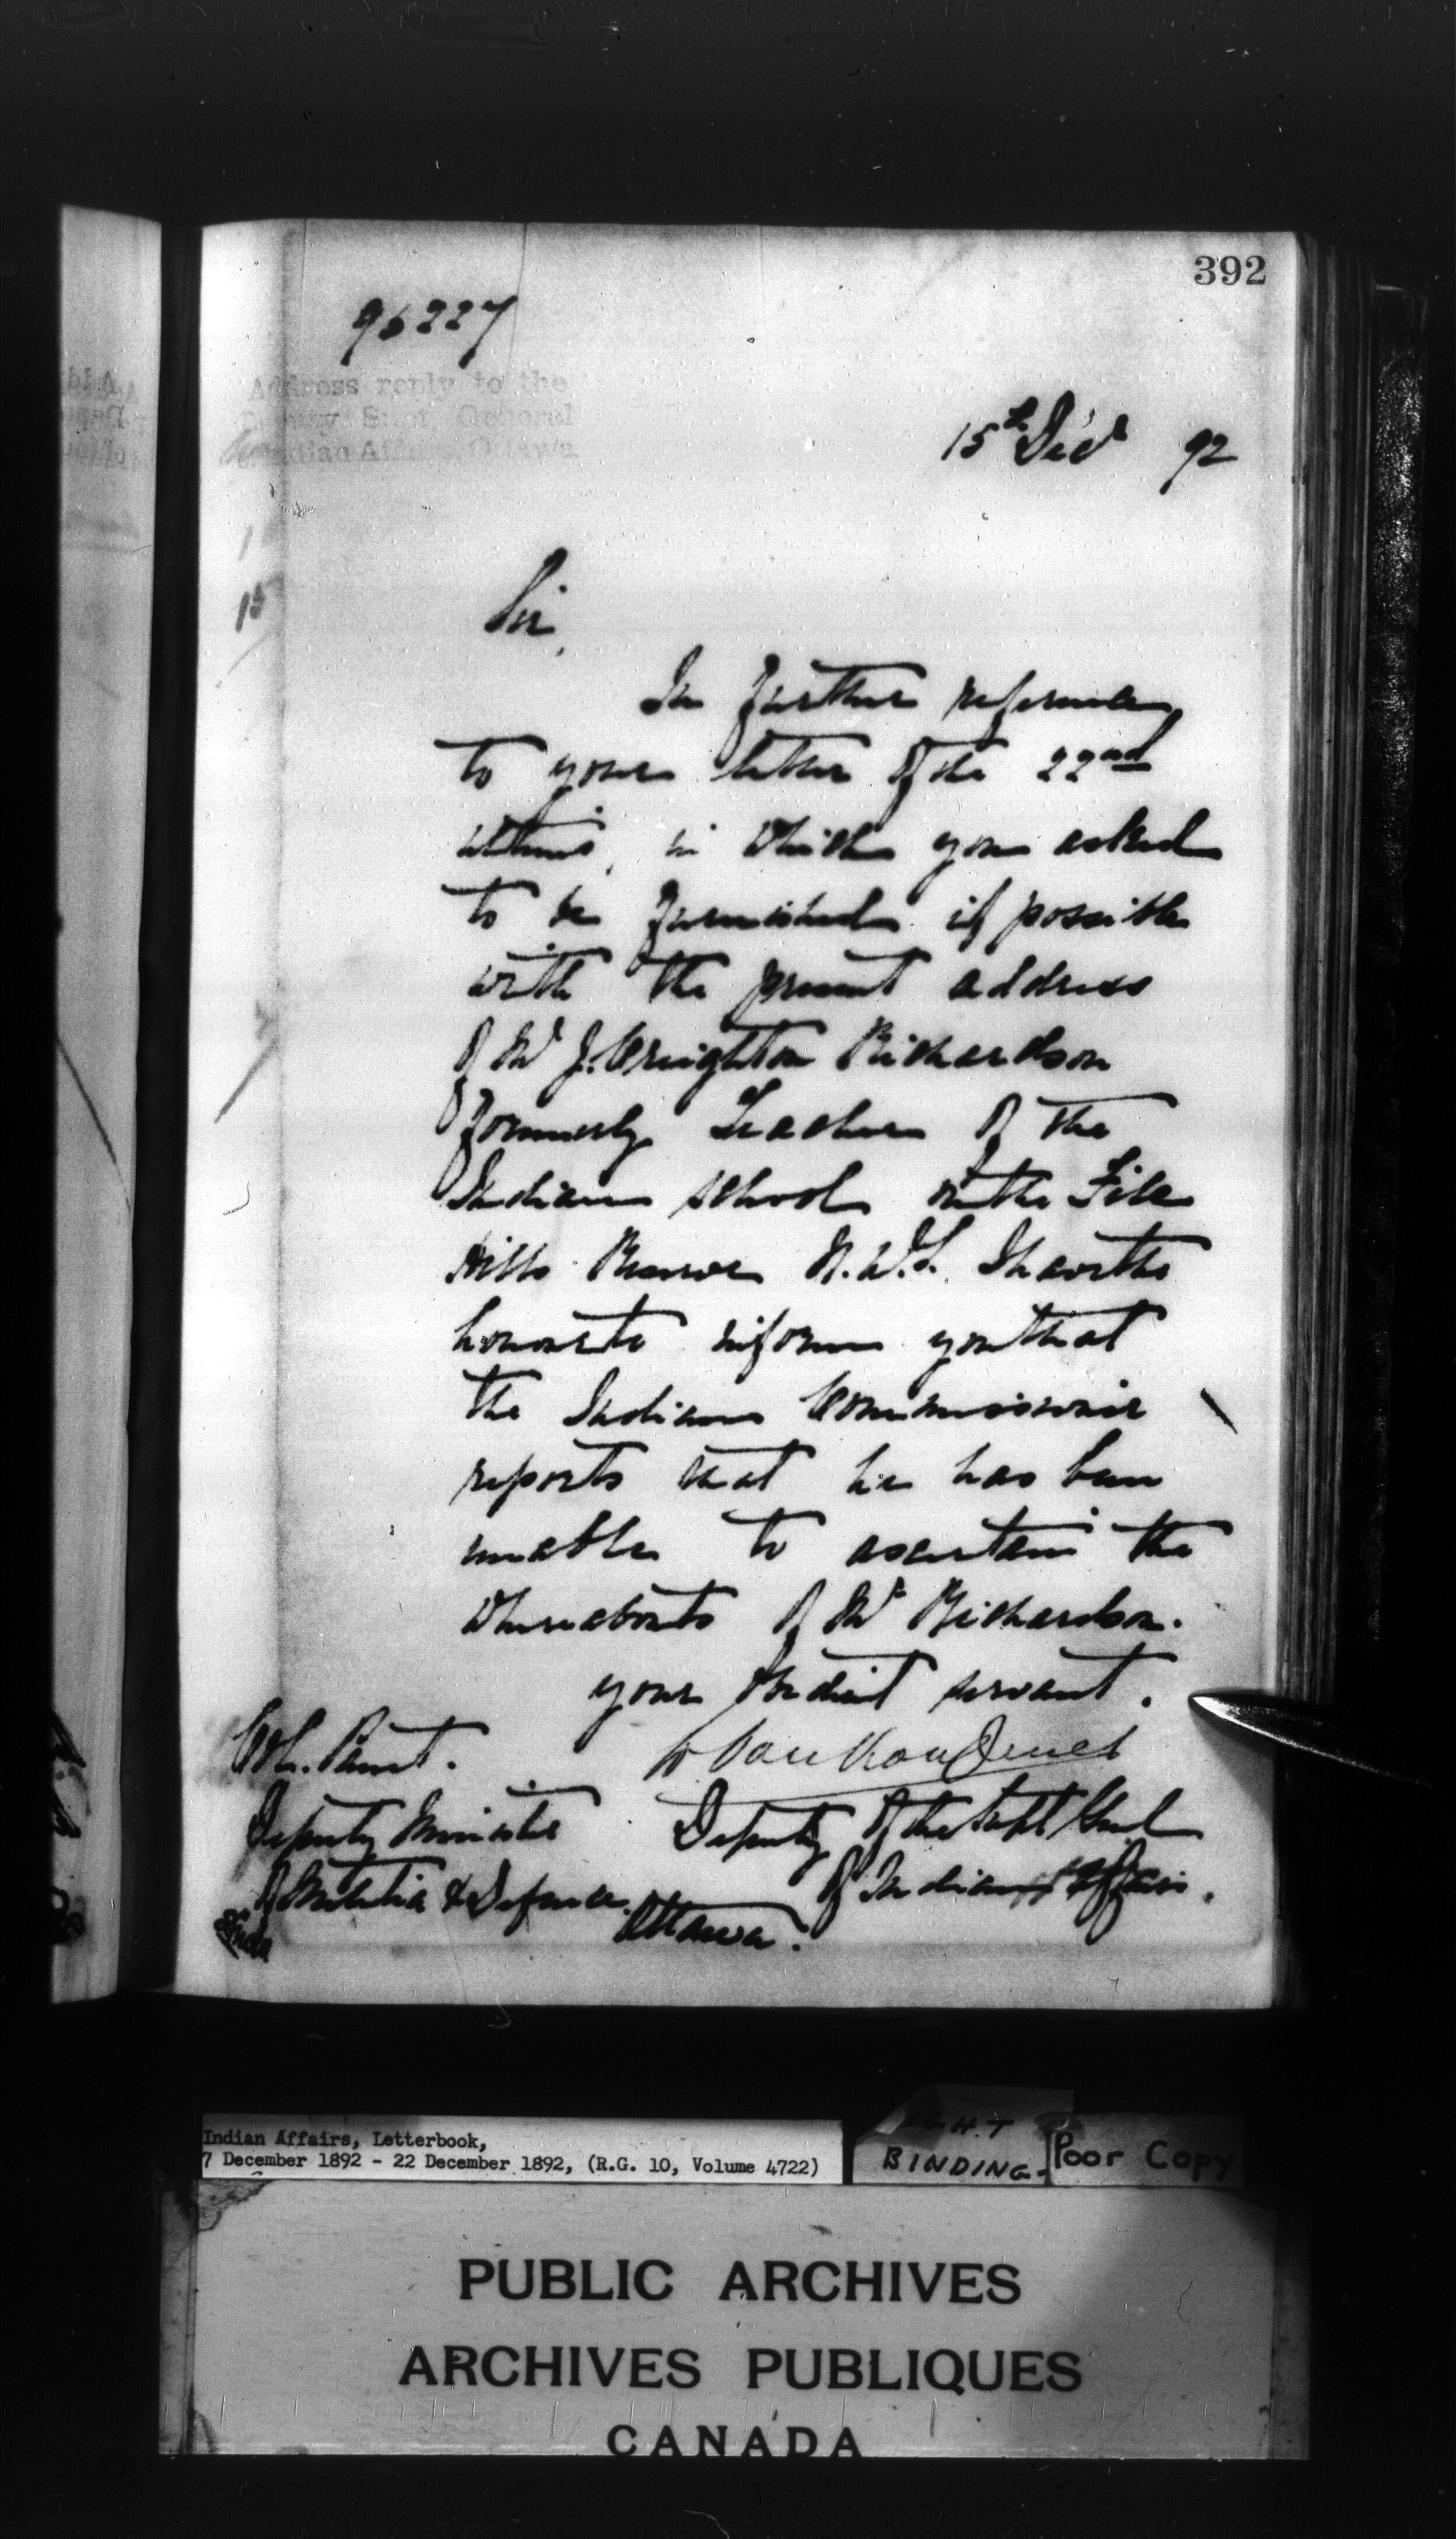 392
96227
Address reply to the
Deputy Supt. General
Indian Affairs, Ottawa
15th Dec 92
15
Sir,
In further reference
to your letter of the 22nd
ultimo, in which you asked
to be furnished if possible
with the present address
of Mr J. Creighton Richardson
formerly Teacher of the
Indian School on the File
Hills Reserve N.W.T. I have the
honour to inform you that
the Indian Commissioner
reports that he has been
unable to ascertain the
whereabouts of Mr Richardson.
Your Obedient servant.
Col. Panet. L VanKoughnet
Deputy Minister Deputy of the Supt Genl
of Militia & Defence. of Indian Affairs.
Ottawa.
Indian Affairs, Letterbook,
7 December 1892 - 22 December 1892, (R.G. 10, Volume 4722)
BINDING
Poor Copy
PUBLIC ARCHIVES
ARCHIVES PUBLIQUES
CANADA